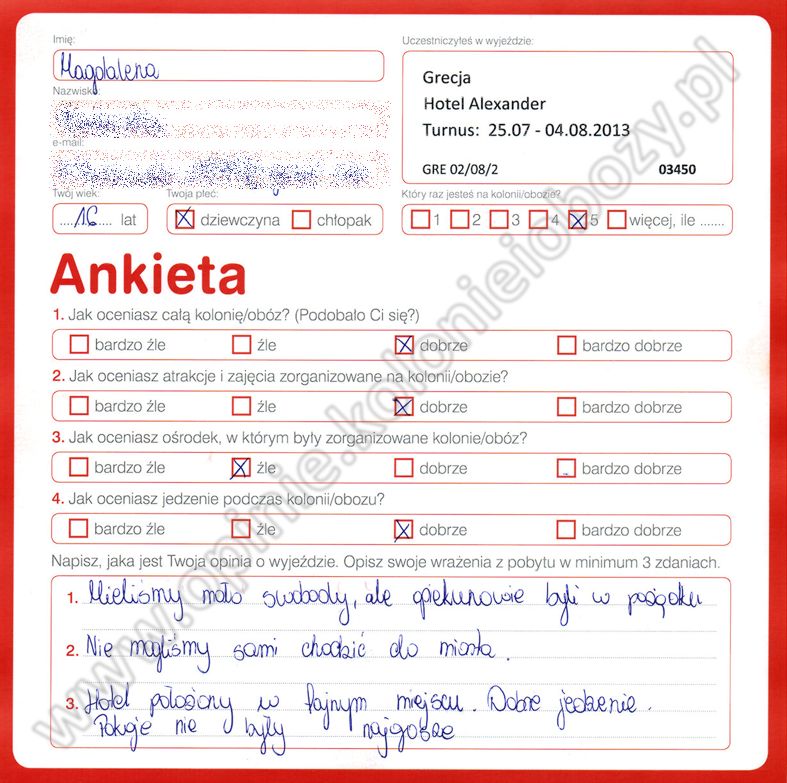 Imię:
Magdalena
Nazwisko:
e-mail:
Twój wiek:
16 lat
Twoja płeć:
dziewczyna chłopak
Uczestniczyłeś w wyjeździe:
Grecja
Hotel Alexander
Turnus: 25.07 - 04.08.2013
GRE 02/08/2 03450
Który raz jesteś na kolonii/obozie?
1 2 3 4 5 więcej, ile .......
Ankieta
1. Jak oceniasz całą kolonię/obóz? (Podobało Ci się?)
bardzo źle źle dobrze bardzo dobrze
2. Jak oceniasz atrakcje i zajęcia zorganizowane na kolonii/obozie?
bardzo źle źle dobrze bardzo dobrze
3. Jak oceniasz ośrodek, w którym były zorganizowane kolonie/obóz?
bardzo źle źle dobrze bardzo dobrze
4. Jak oceniasz jedzenie podczas kolonii/obozu?
bardzo źle źle dobrze bardzo dobrze
Napisz, jaka jest Twoja opinia o wyjeździe. Opisz swoje wrażenia z pobytu w minimum 3 zdaniach.
1. Mieliśmy mało swobody, ale opiekunowie byli w porządku
2. Nie mogliśmy sami chodzić do miasta.
3. Hotel położony w fajnym miejscu. Dobre jedzenie.
Pokoje nie były najgorsze
www.opinie.kolonieiobozy.pl